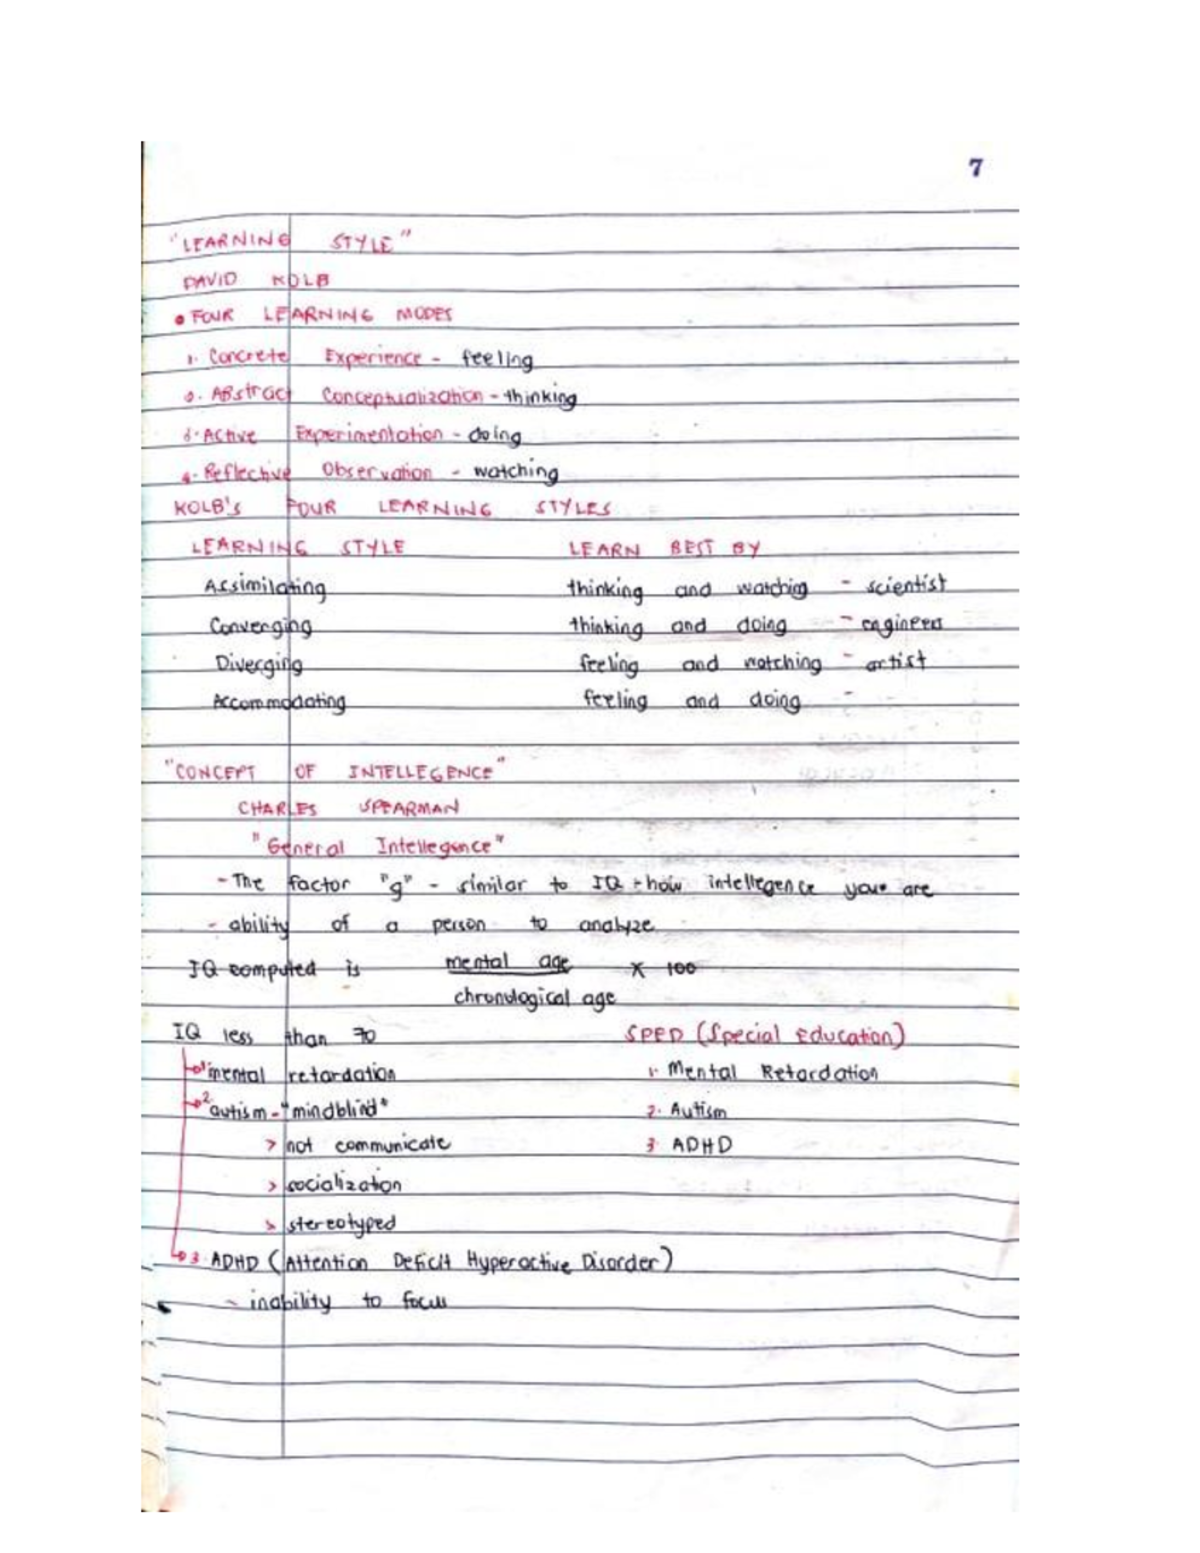 7
"LEARNING STYLE"
DAVID KOLB
• FOUR LEARNING MODES
1. Concrete Experience - feeling
2. ABstract Conceptualization - thinking
3. Active Experimentation - doing
4. Reflective Observation - watching
KOLB's FOUR LEARNING STYLES
LEARNING STYLE LEARN BEST BY
Assimilating thinking and watching - scientist
Converging thinking and doing - engineers
Diverging feeling and watching - artist
Accommodating feeling and doing -
"CONCEPT OF INTELLEGENCE"
CHARLES SPEARMAN
"General Intellegence"
- The factor "g" - similar to IQ - how intellegence your are
- ability of a person to analyze
IQ computed is mental age X 100
chronological age
IQ less than 70 SPED (Special Education)
1 mental retardation 1. Mental Retardation
2 autism - "mindblind" 2. Autism
> not communicate 3. ADHD
> socializaton
> stereotyped
3. ADHD (Attention Deficit Hyperactive Disorder)
- inability to focus